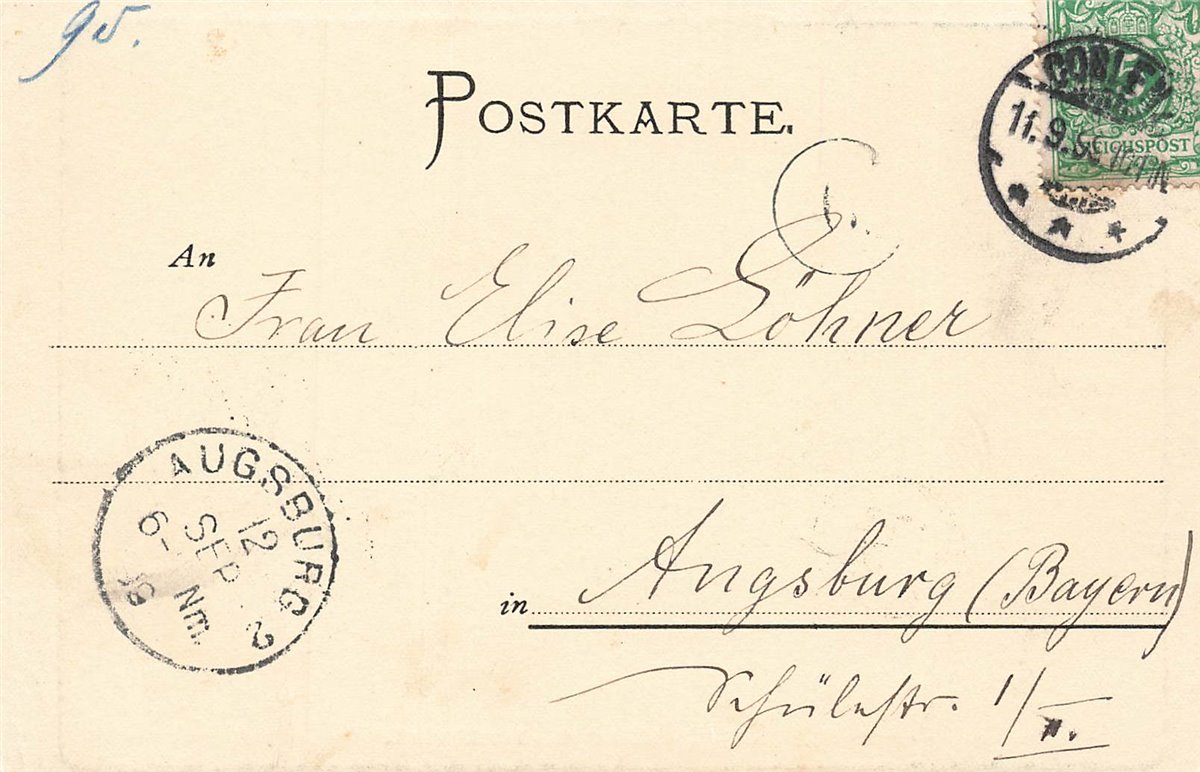 95.
POSTKARTE.
REICHSPOST
11.9.
An
Frau Elise Löhner
AUGSBURG 2
12
SEP
6-
Nm.
in Augsburg (Bayern)
Schülestr. 1/II.